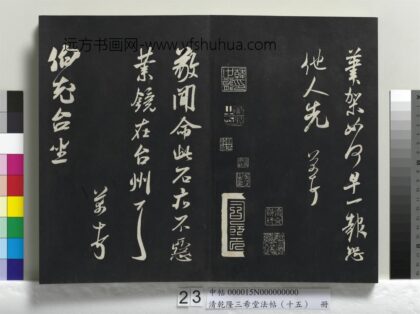 架如何早一報恐
他人先
敬聞命此石亦不惡
業鏡在台州
伯充台坐
远方书画网-www.yfshuhua.com
23
中帖 000015N000000000
清乾隆三希堂法帖（十五） 冊